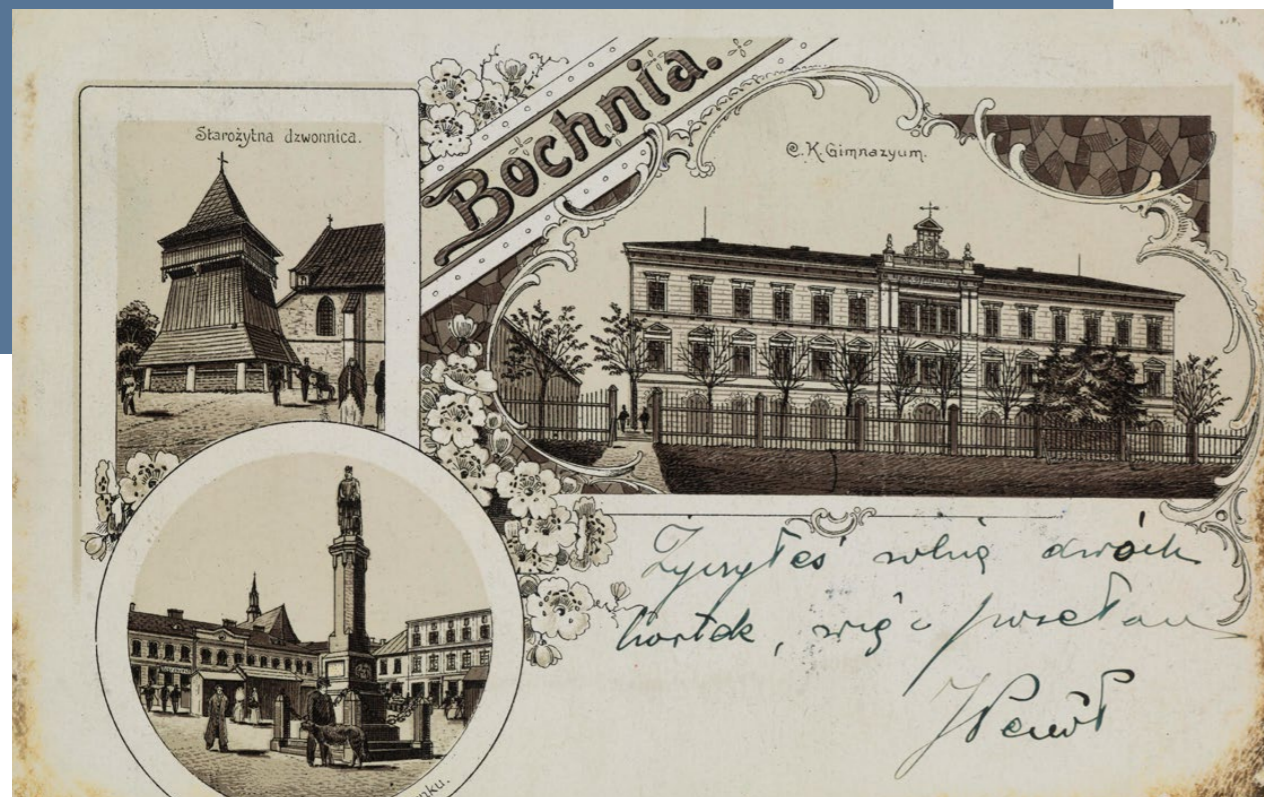 Starożytna dzwonnica.
Bochnia.
C.K. Gimnazyum.
Życzyłeś dwóch
kartek, więc posełam